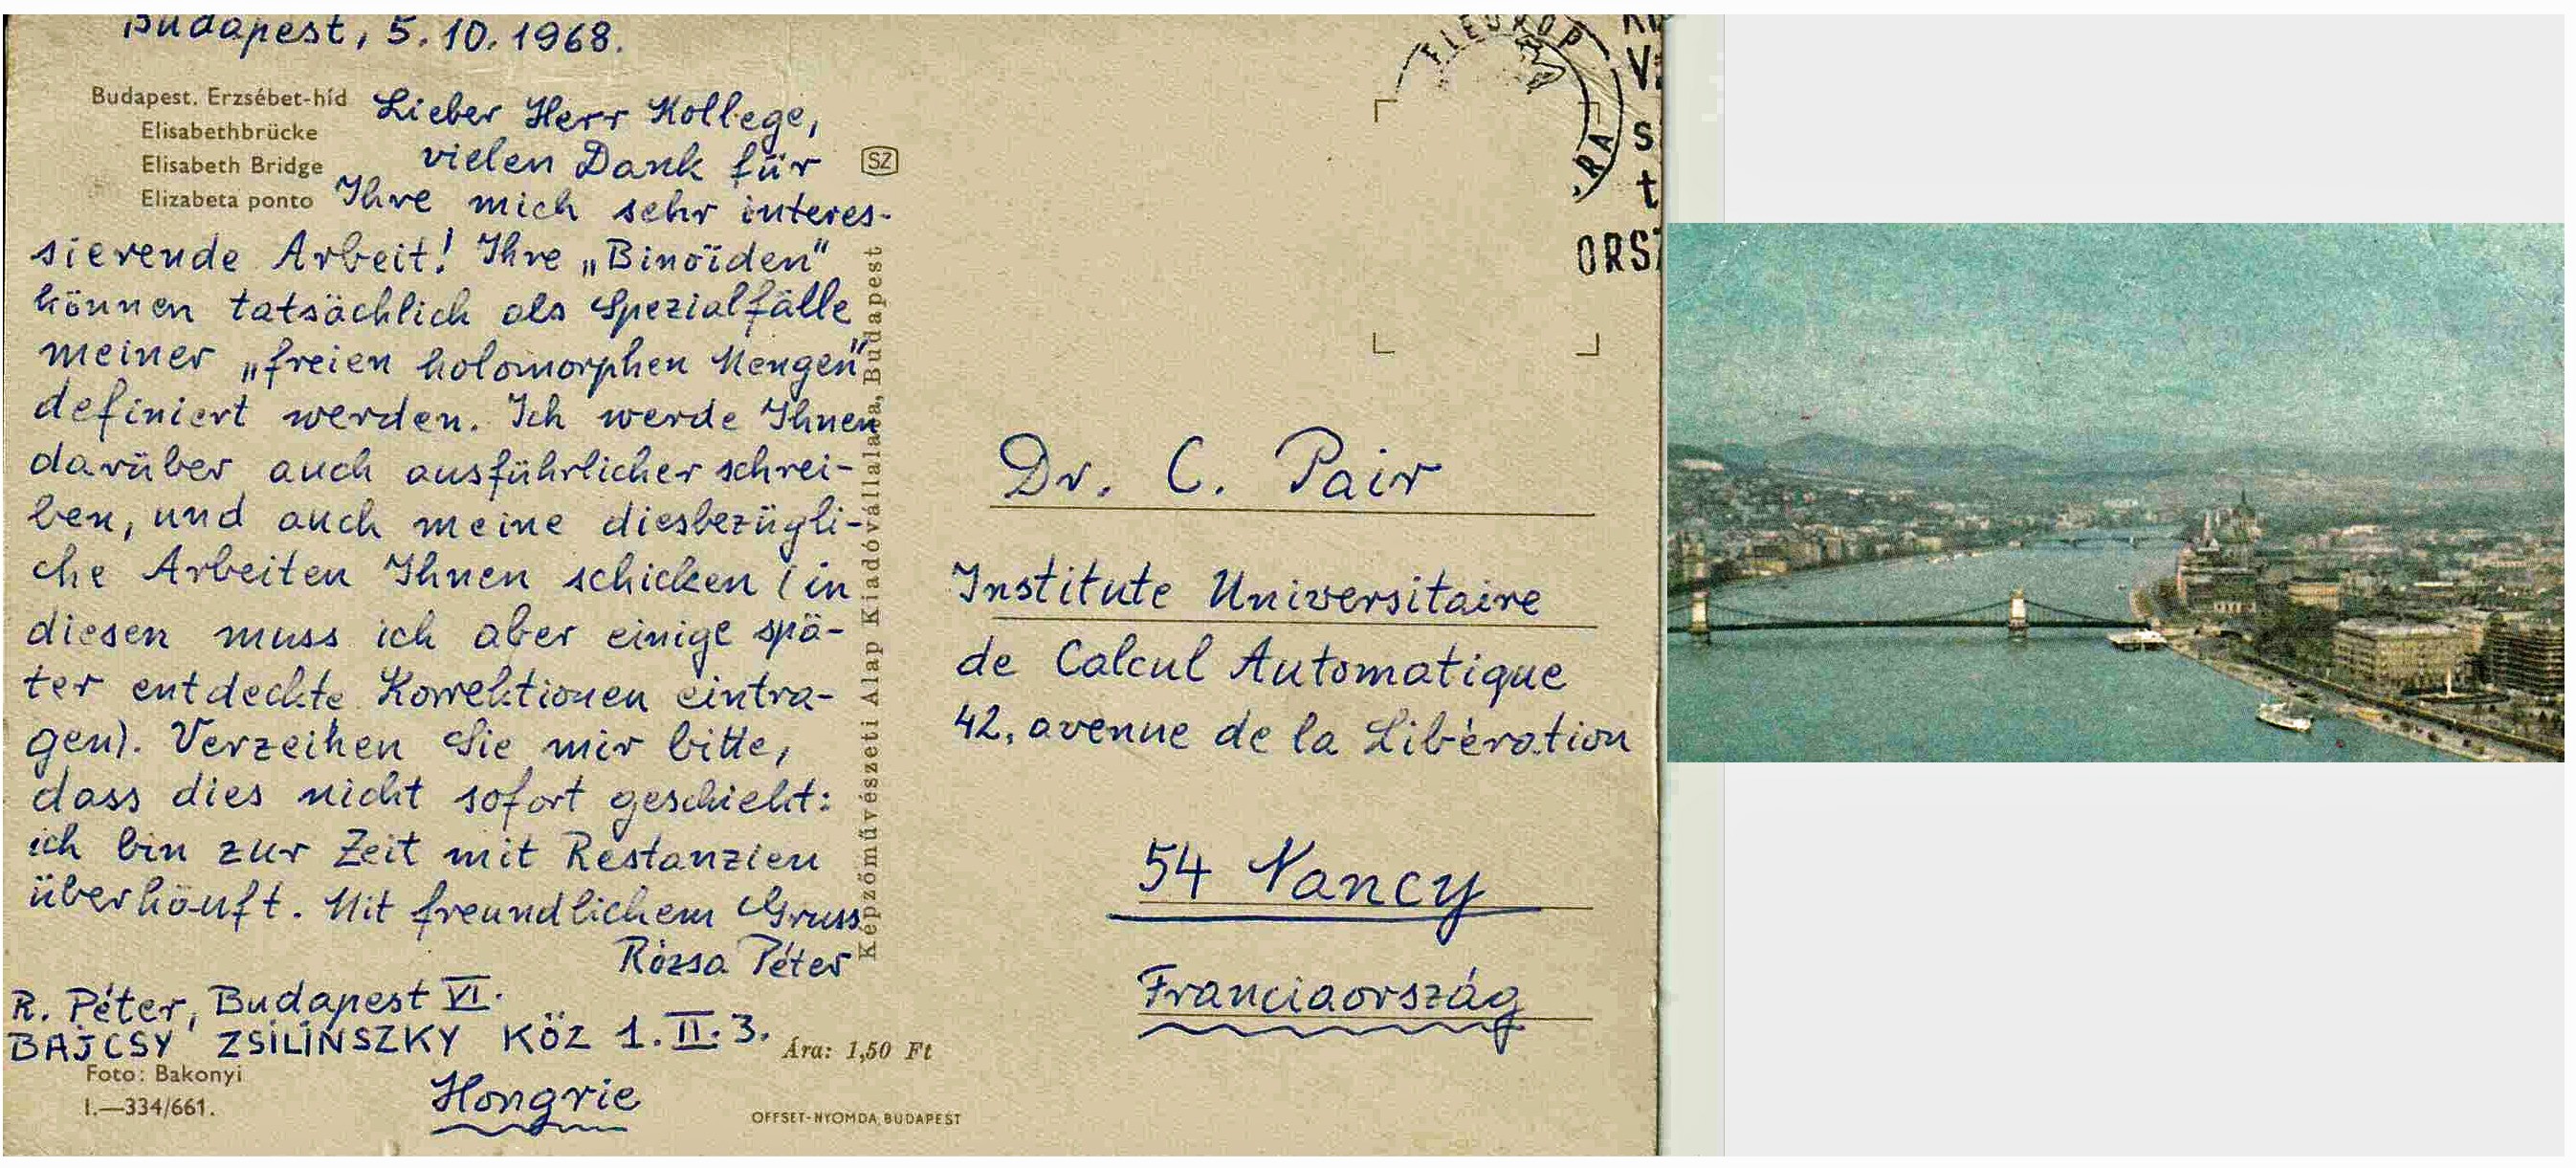 Budapest, 5.10.1968.
Budapest. Erzsébet-híd
Elisabethbrücke
Elisabeth Bridge
Elizabeta ponto
Lieber Herr Kollege,
vielen Dank für
Ihre mich sehr interes-
sierende Arbeit! Ihre „Binoïden"
können tatsächlich als Spezialfälle
meiner „freien holomorphen Mengen"
definiert werden. Ich werde Ihnen
darüber auch ausführlicher schrei-
ben, und auch meine diesbezügli-
che Arbeiten Ihnen schicken (in
diesen muss ich aber einige spä-
ter entdeckte Korrektionen eintra-
gen). Verzeihen Sie mir bitte,
dass dies nicht sofort geschieht:
ich bin zur Zeit mit Restanzien
überhäuft. Mit freundlichem Gruss
Rózsa Péter
R. Péter, Budapest VI.
BAJCSY ZSILINSZKY KÖZ 1. II. 3.
Hongrie
Foto: Bakonyi
I.—334/661.
Ára: 1,50 Ft
OFFSET-NYOMDA, BUDAPEST
SZ
Képzőművészeti Alap Kiadóvállalata, Budapest
ORSZ
Dr. C. Pair
Institute Universitaire
de Calcul Automatique
42, avenue de la Libération
54 Nancy
Franciaország